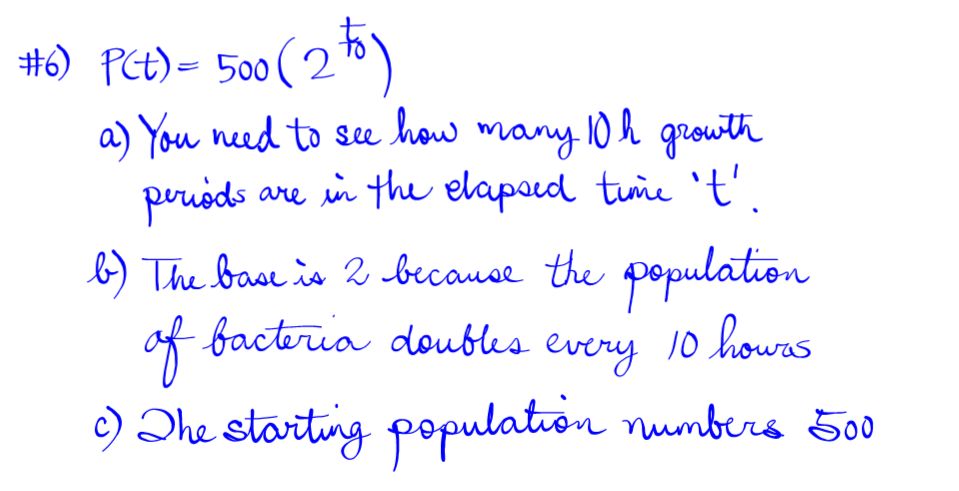 #6) P(t) = 500 (2^(t/10))
a) You need to see how many 10 h growth
periods are in the elapsed time 't'.
b) The base is 2 because the population
of bacteria doubles every 10 hours
c) The starting population numbers 500